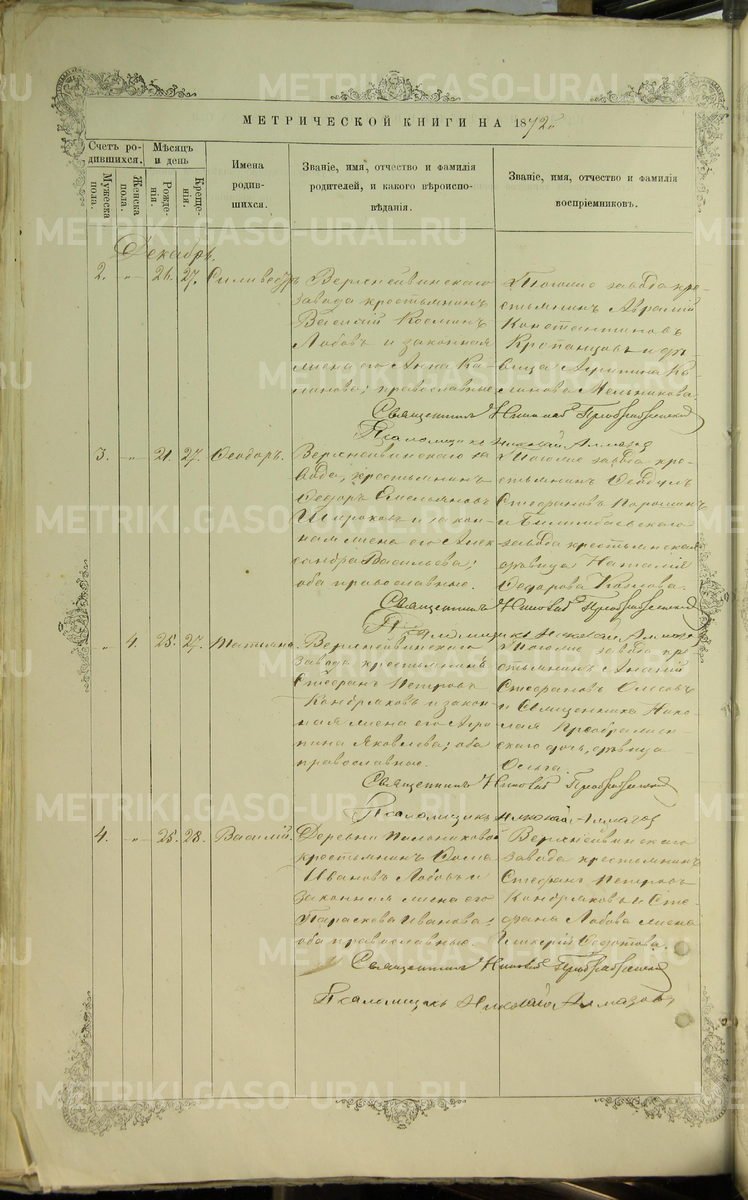 МЕТРИЧЕСКОЙ КНИГИ НА 1872
Счетъ ро-
дившихся.
Мѣсяцъ
и день
Мужеска
пола.
Женска
пола.
Рожде-
нія.
Креще-
нія.
Имена
родив-
шихся.
Званіе, имя, отчество и фамилія
родителей, и какого вѣроиспо-
вѣданія.
Званіе, имя, отчество и фамилія
воспріемниковъ.
Декабрь.
2. „ 26. 27. Силивестръ
Верхнейвинскаго
завода крестьянинъ
Василій Косминъ
Лобовъ и законная
жена его Анна Ка-
православные
Тогоже завода кре-
стьянинъ Аврамій
Константиновъ
и дѣ-
вица Агрипина
Мельникова.
Священникъ Николай Преображенскій
Псаломщикъ Николай Алмазовъ
3. „ 21. 27. Ѳеодоръ.
Верхнейвинскаго за
вода, крестьянинъ
Ѳедоръ Емельяновъ
Широковъ и закон-
ная жена его Алек
сандра Васильева;
оба православные.
Тогоже завода кре-
стьянинъ Ѳеодулъ
Стефановъ
и Билимбаевскаго
завода крестьянская
дѣвица Наталія
Ѳедорова Козлова.
Священникъ Николай Преображенскій
Псаломщикъ Николай Алмазовъ
„ 4. 25. 27. Татіана.
Верхнейвинскаго
завода крестьянинъ
Стефанъ Петровъ
Кондряковъ и закон-
ная жена его Агри
пина Яковлева; оба
православные.
Тогоже завода кре
стьянинъ
Стефановъ Елисовъ
и Священника Нико-
лая Преображен-
скаго дочь, дѣвица
Ольга.
Священникъ Николай Преображенскій
Псаломщикъ Николай Алмазовъ
4. „ 25. 28. Василій.
Деревни
крестьянинъ Ѳома
Ивановъ Лобовъ и
законная жена его
Параскева Иванова;
оба православные.
Верхнейвинскаго
завода крестьянинъ
Стефанъ Петровъ
Кондряковъ и Сте-
фана Лобова жена
Гликерія Ѳедотова.
Священникъ Николай Преображенскій
Псаломщикъ Николай Алмазовъ
METRIKI.GASO-URAL.RU